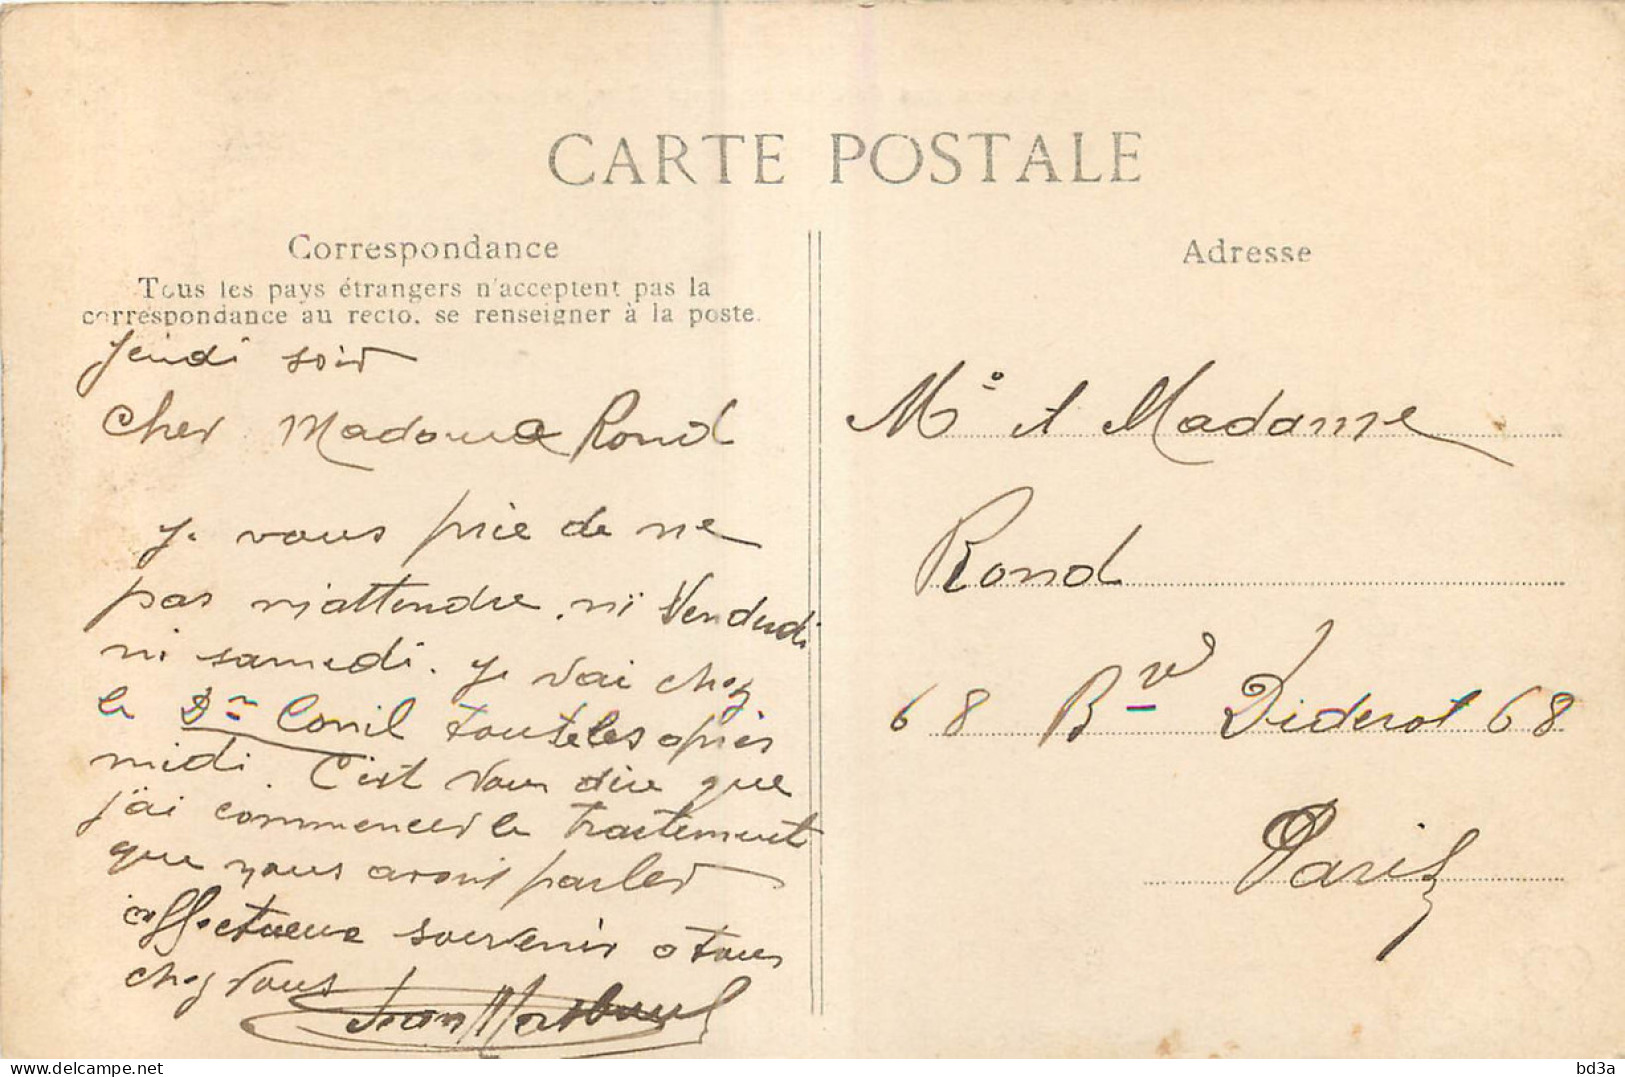 CARTE POSTALE
Correspondance
Tous les pays étrangers n'acceptent pas la
correspondance au recto, se renseigner à la poste.
Jeudi soir
Cher Madame Rond
Je vous prie de ne
pas m'attendre, ni Vendredi
ni samedi. Je vai chez
le Dr Conil toute les après
midi. C'est vous dire que
j'ai commencer le traitement
que nous avons parler
affectueux souvenir a tous
chez vous
Jean
Adresse
Mr et Madame
Rond
68 Bvd Diderot 68
Paris
delcampe.net
bd3a